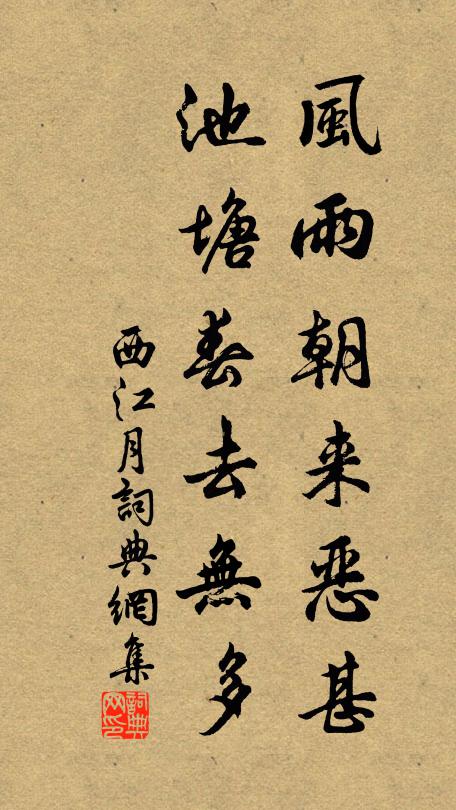 風雨朝来惡甚
池塘春去無多
西江月詞典網集
詞典
网印